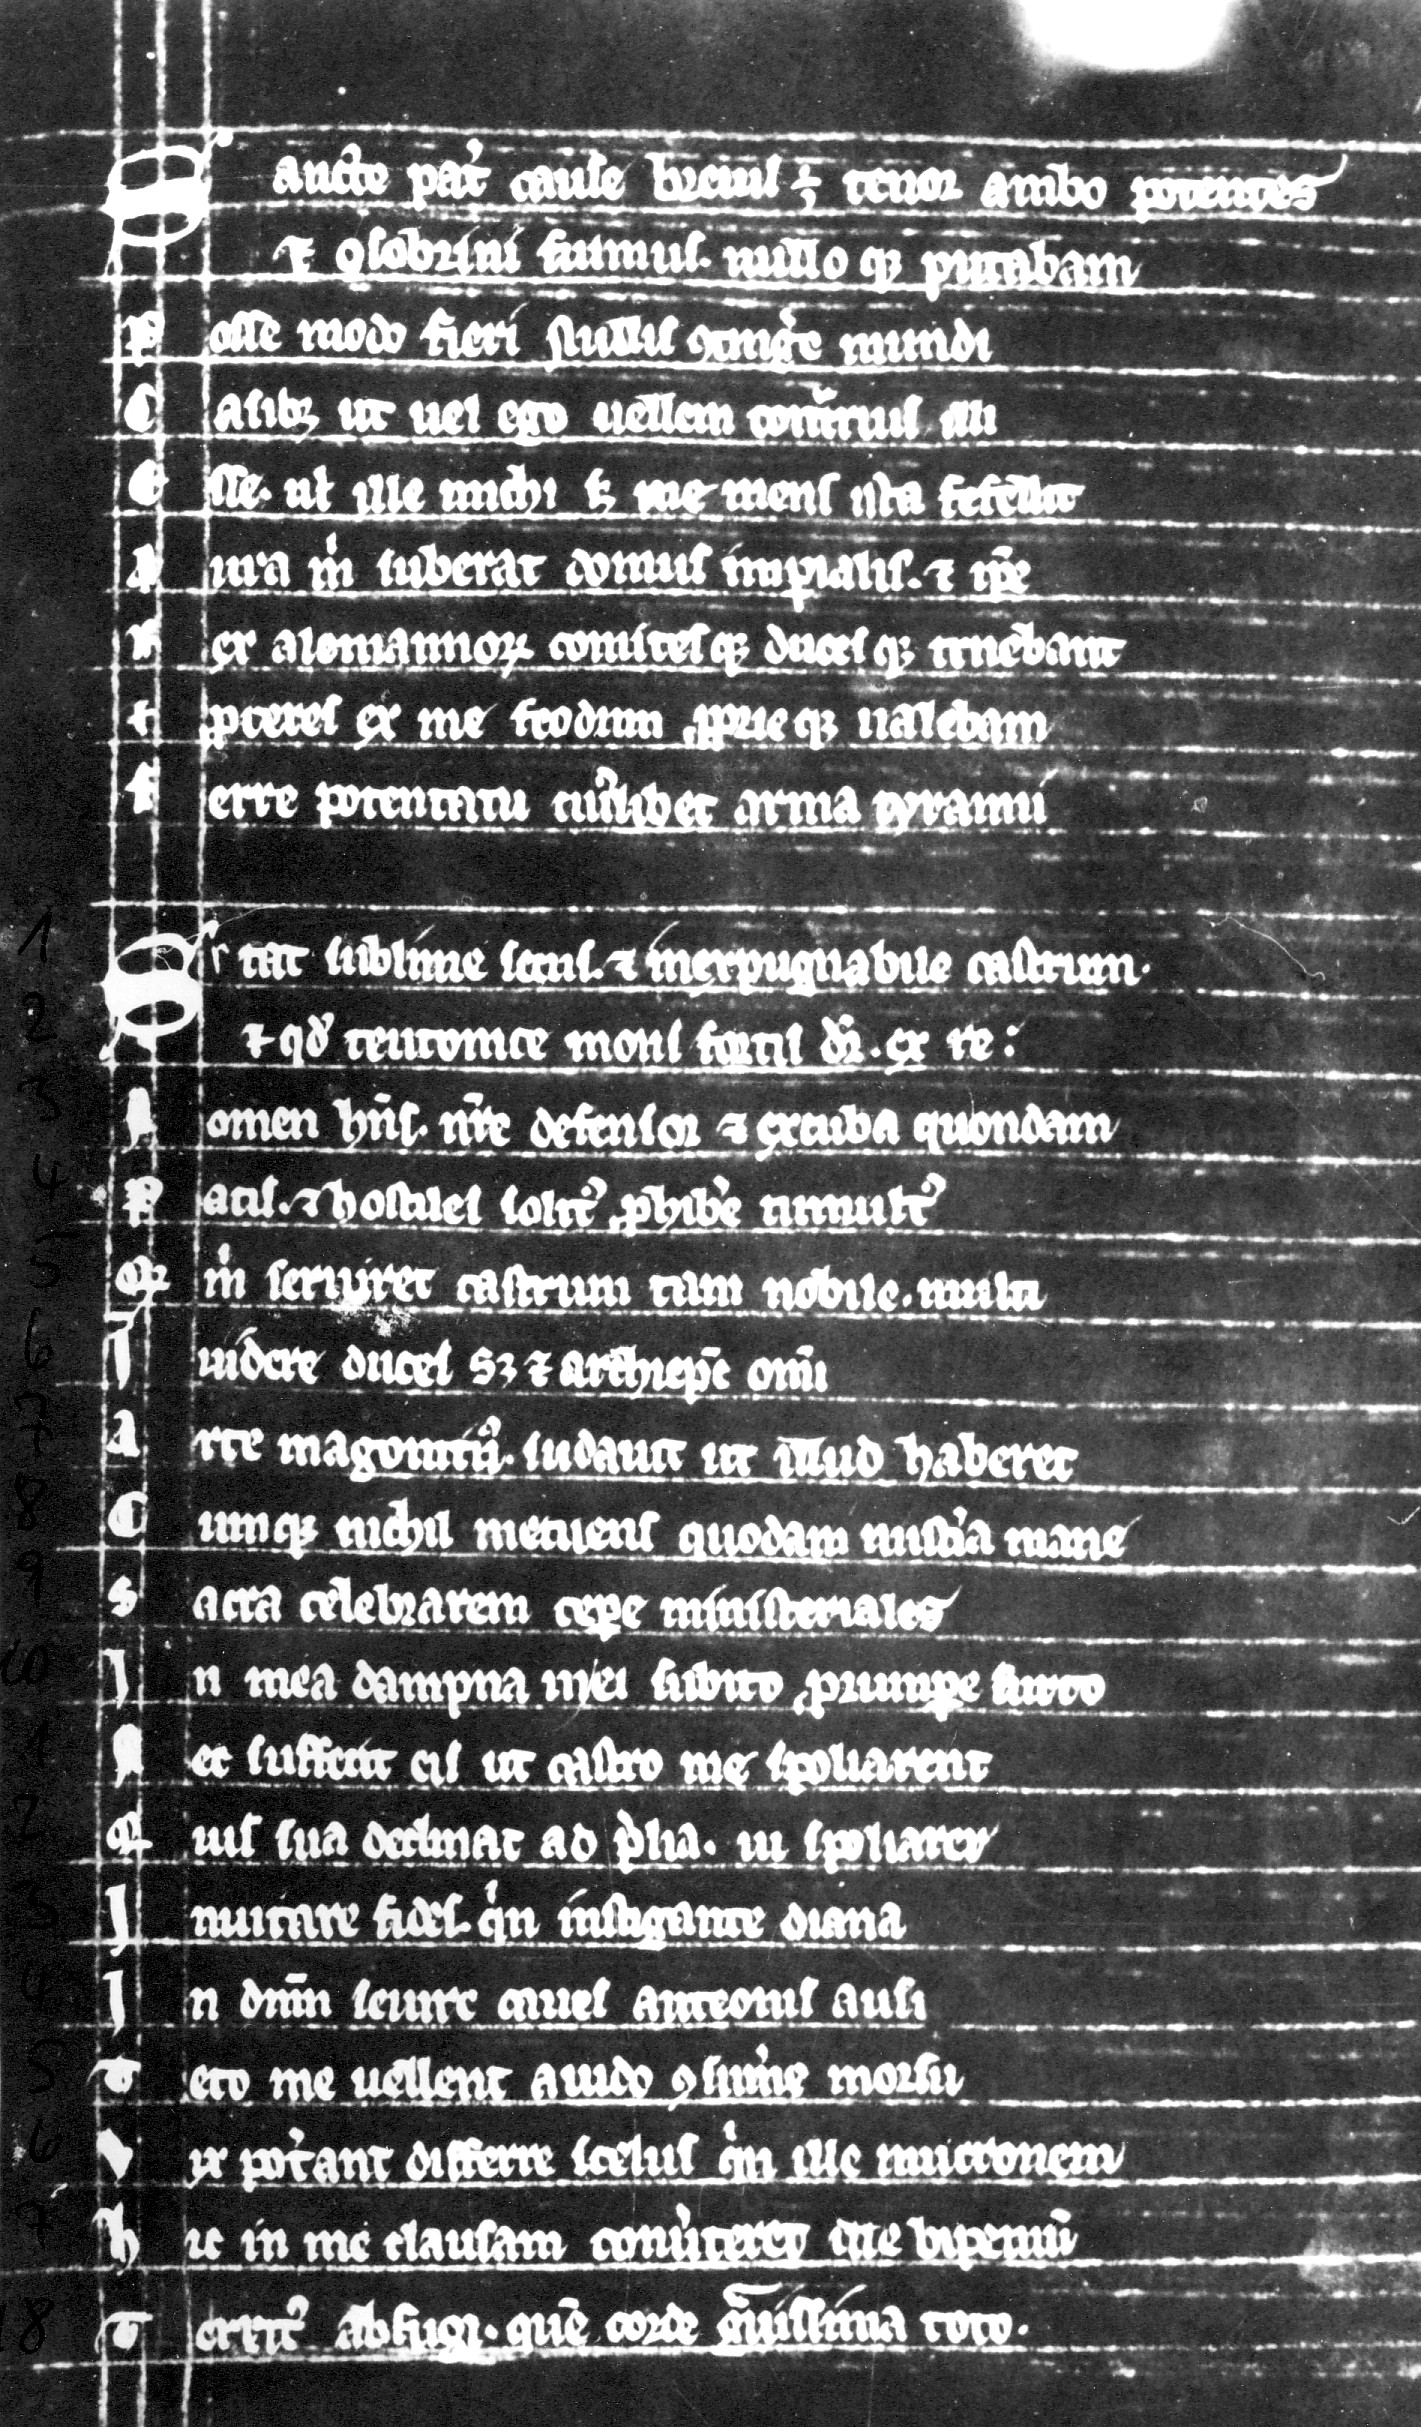 Sancte pat᷑ cause breuis ē tenor ambo potentes
⁊ ꝯsobrini fuimus. nullo qꝫ putabam
Posse modo fieri nullis ꝯtinge mundi
Casibꝫ ut uel ego uellem contrarius illi
Esse. ul ille michi sꝫ me mens ista fefellit
Aura m̓ suberat domus imꝑialis. ⁊ ip̄e
Rex alemannoꝝ comitesqꝫ ducesqꝫ tenebant
et ꝓceres ex me feodum ꝓprieqꝫ ualebam
ferre potentatu cuiuslibet arma tyranni
1 Stat sublime scitus. ⁊ inexpugnabile castrum.
2 ⁊ qd̓ teutonice mons fortis dr̄. ex re:
3 Nomen hn̄s. nr̄e defensor ⁊ excubia quondam
4 Pacis. ⁊ hostiles solitꝰ ꝓhibe᷑ tumultꝰ
5 Qꝫ m̓ seruiret castrum tam nobile. multi
6 Inuidere duces sꝫ ⁊ archiep̄c om̄i
7 Arte magontinꝰ. sudauit ut illud haberet
8 Cumqꝫ nichil metuens quodam mist̓ia mane
9 sacra celebrarem cepe ministeriales
10 In mea dampna mei subito ꝓrumpe furto
1 Nec suffecit eis ut castro me spoliarent
2 Quis sua declinat ad p̓lia. ui spoliarer
3 Inuitare fides. q̓n instigante diana
4 In dn̄m seuire canes anteonis ausi
5 Toto me uellent auido ꝯsum̓e morsu
6 Vix pot̓ant differre scelus q̓n ille mucronem
7 hic in me clausam conu̓teret ille bipennē
18 Territꝰ Abfugi. quē corde gͣuissima toto.